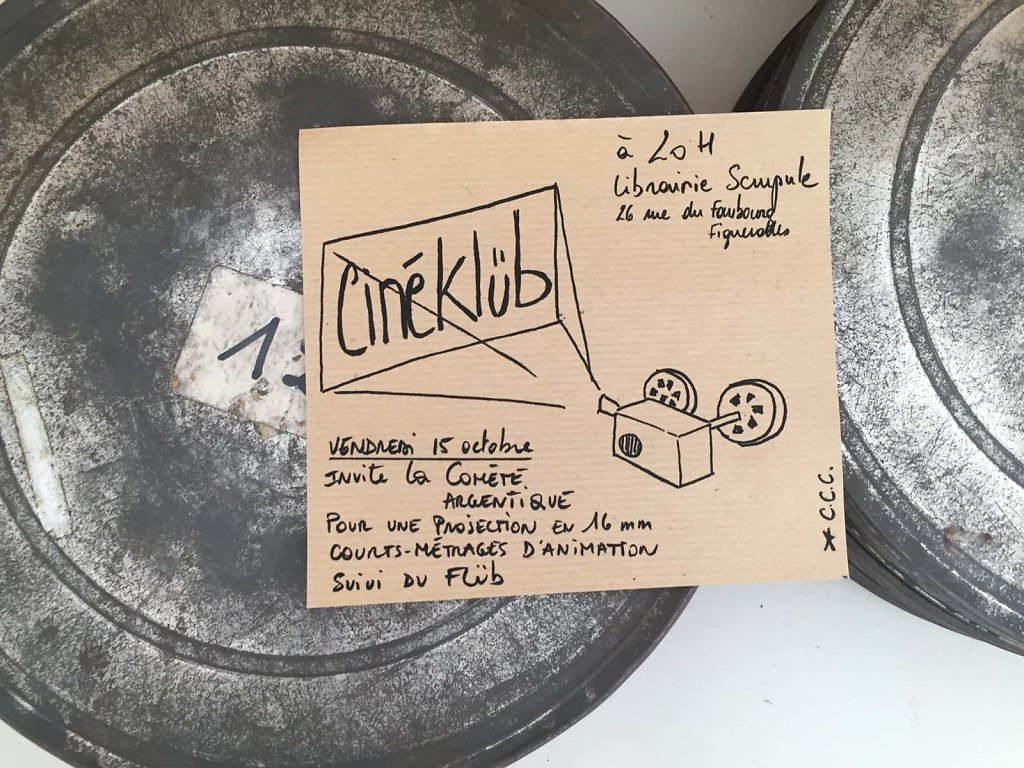 à 20H
Librairie Scrupule
26 rue du Faubourg
Figuerolles
Cinéklüb
VENDREDI 15 octobre
INVITE La COMÈTE
ARGENTIQUE
POUR UNE PROJECTION EN 16 mm
COURTS-MÉTRAGES D'ANIMATION
SUIVI DU FLÜB
* C.C.C.